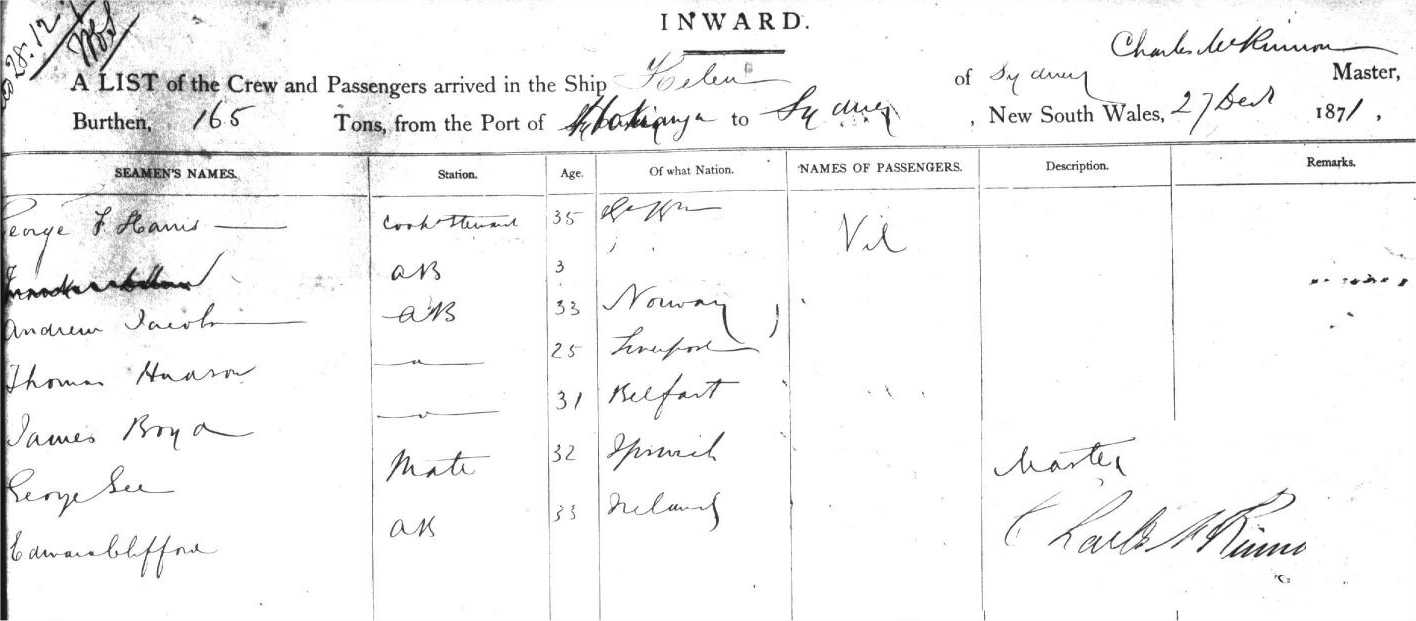 28.12
INWARD.
Charles McKinnon
A LIST of the Crew and Passengers arrived in the Ship Helen of Sydney Master,
Burthen, 165 Tons, from the Port of Hokianga to Sydney , New South Wales, 27 Dec 1871 ,
SEAMEN'S NAMES. Station. Age. Of what Nation. NAMES OF PASSENGERS. Description. Remarks.
George F Harris Cook & Steward 35 Nil
AB 3
Andrew Jacob AB 33 Norway
Thomas Hudson 25 Liverpool
James Boyd 31 Belfast
George Gee Mate 32 Ipswich Master
Edward Clifford AB 33 Ireland Charles McKinno